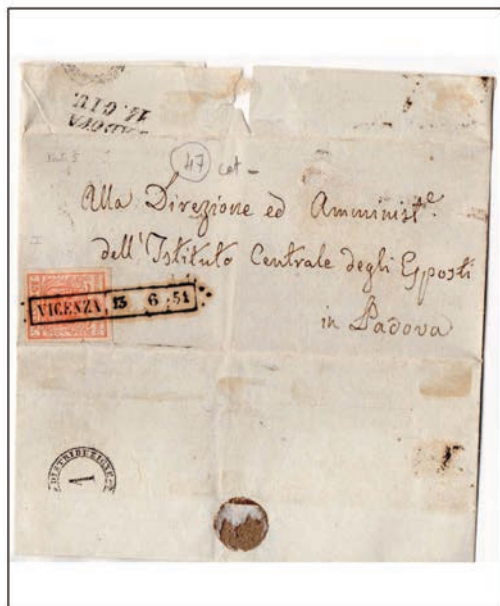 PADOVA
14. GIU.
47 cat -
Alla Direzione ed Amminist.e
dell'Istituto Centrale degli Esposti
in Padova
VICENZA 13 6 51
DISTRIBUZIONE
1